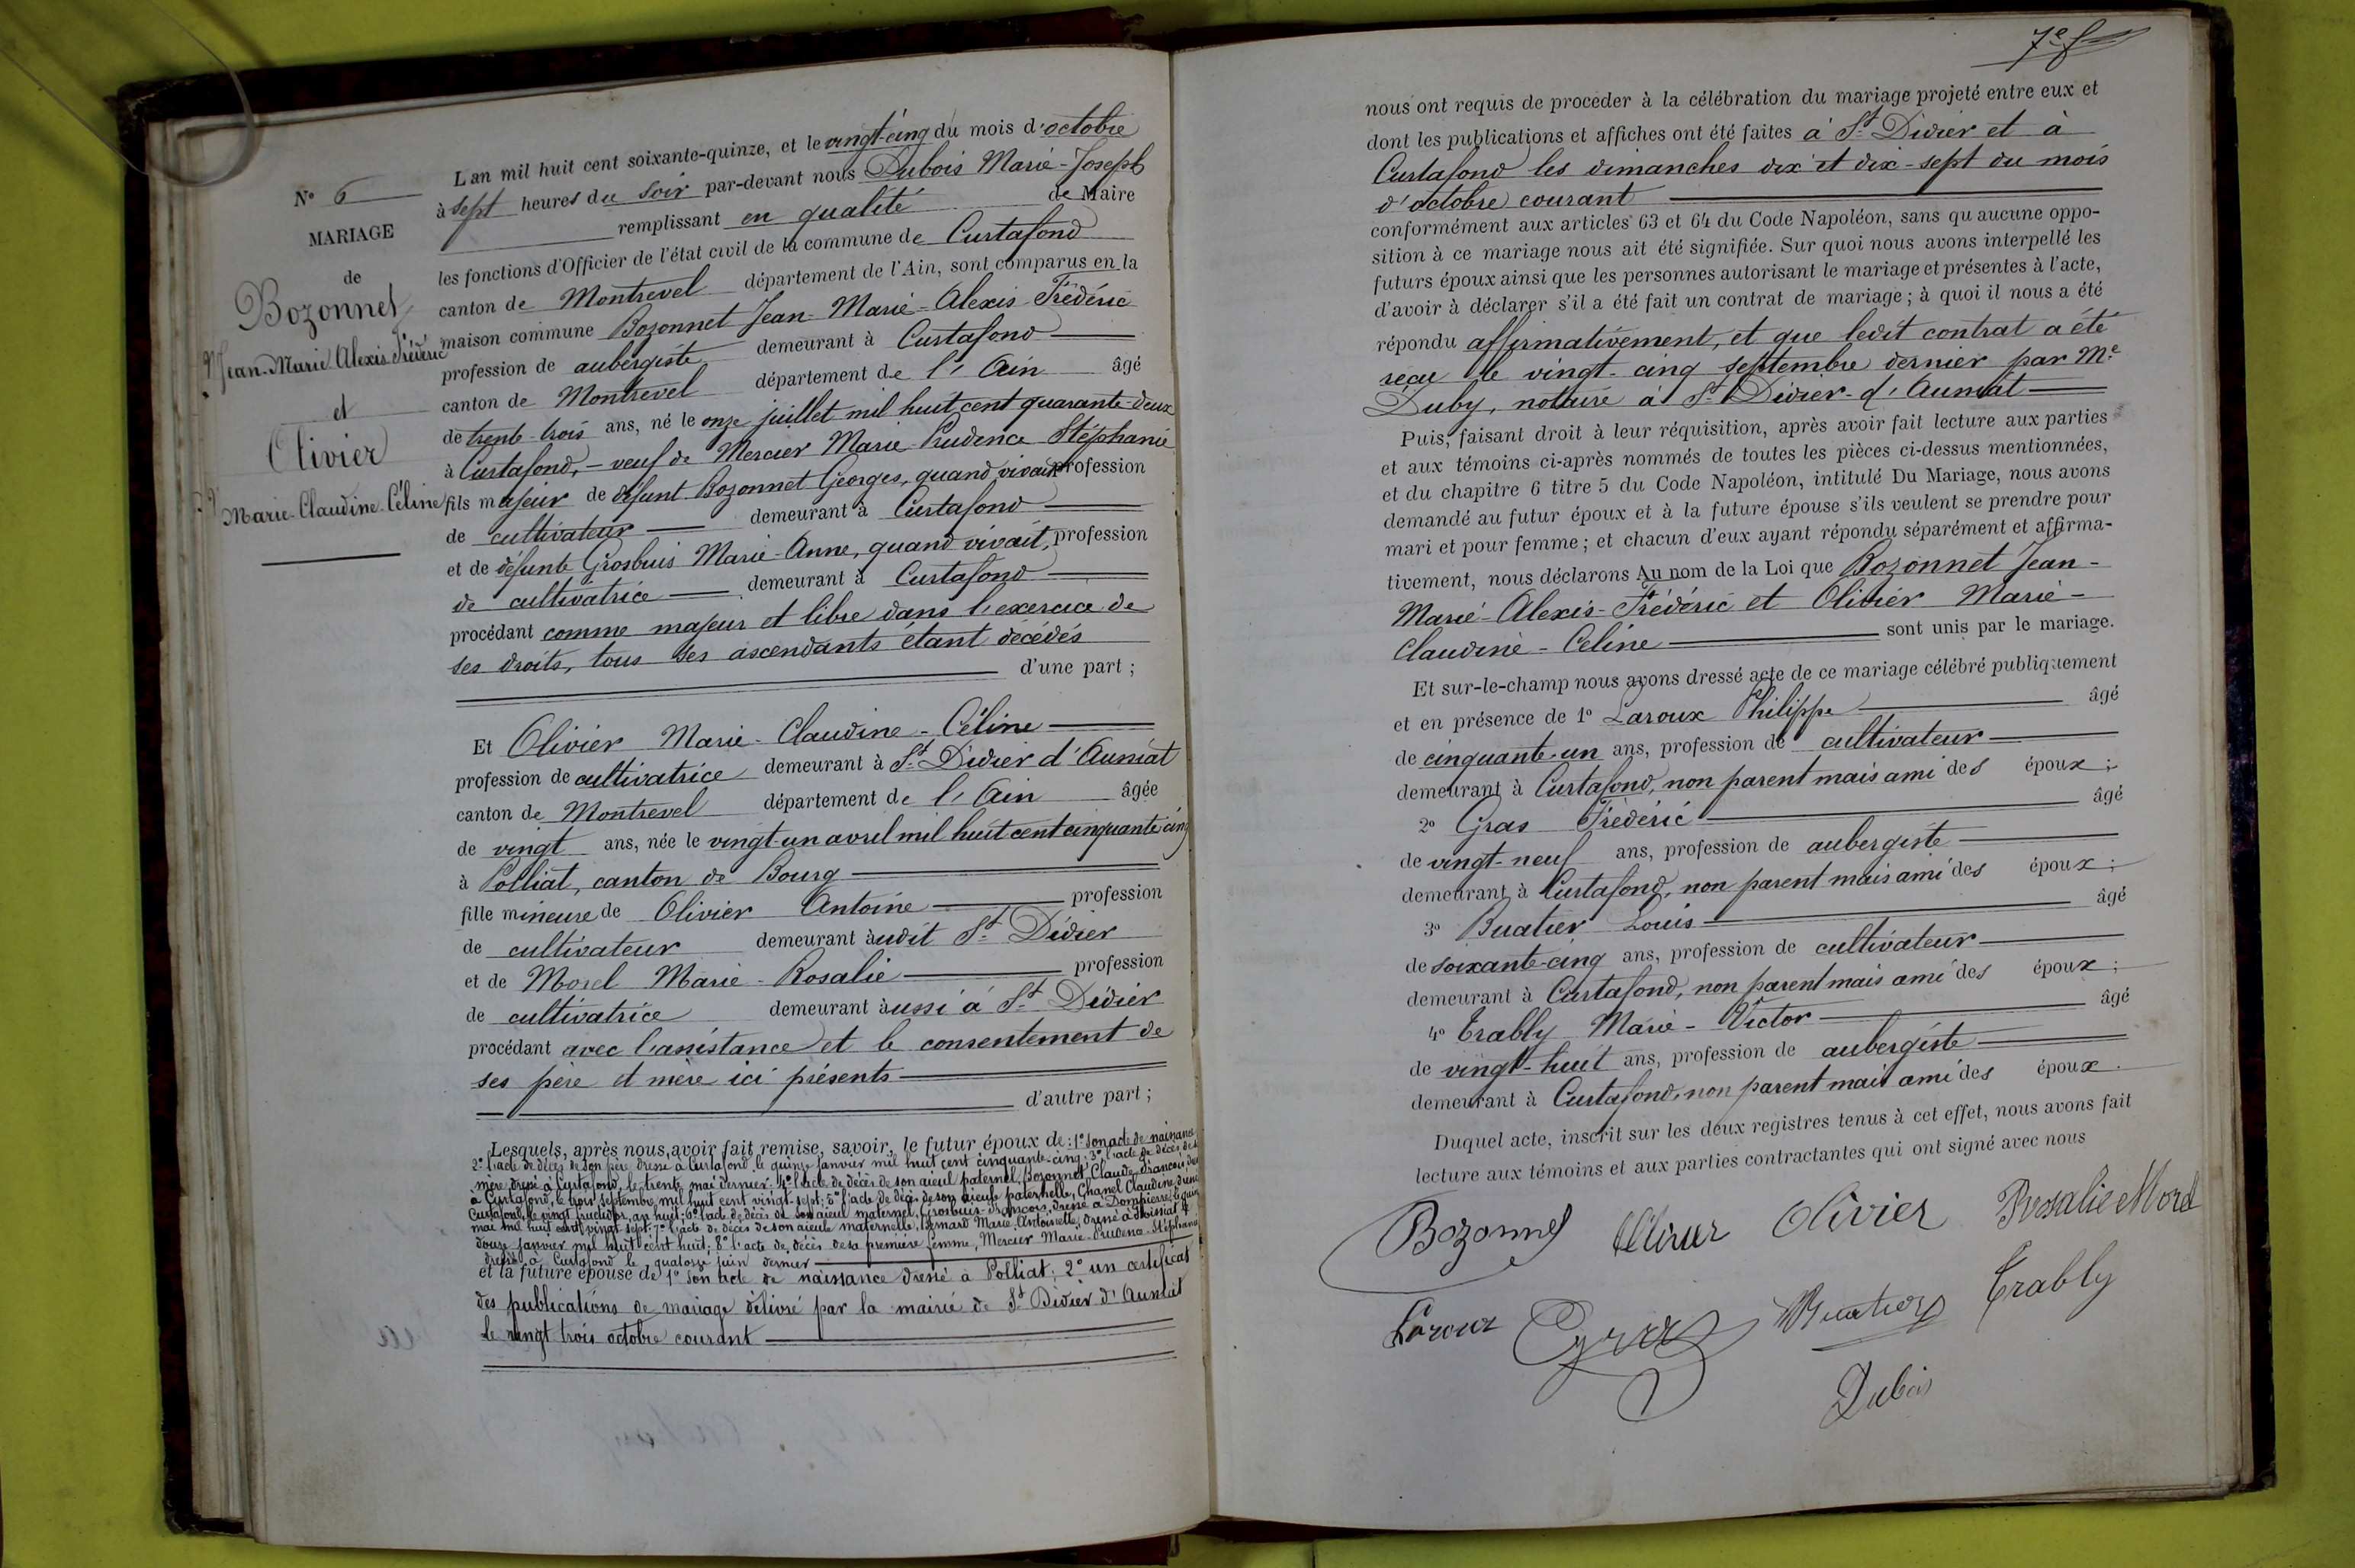 N° 6
MARIAGE
de
Bozonnet
Jean-Marie Alexis Frédéric
et
Olivier
Marie-Claudine-Céline
L'an mil huit cent soixante-quinze, et le vingt-cinq du mois d'octobre
à sept heures du soir par-devant nous Dubois Marie-Joseph
remplissant en qualité de Maire
les fonctions d'Officier de l'état civil de la commune de Curtafond
canton de Montrevel département de l'Ain, sont comparus en la
maison commune Bozonnet Jean-Marie-Alexis-Frédéric
profession de aubergiste demeurant à Curtafond
canton de Montrevel département de l'Ain âgé
de trente-trois ans, né le onze juillet mil huit cent quarante-deux
à Curtafond, - veuf de Mercier Marie-Prudence Stéphanie
fils majeur de défunt Bozonnet Georges, quand vivait profession
de cultivateur demeurant à Curtafond
et de défunte Grosbuis Marie-Anne, quand vivait, profession
de cultivatrice demeurant à Curtafond
procédant comme majeur et libre dans l'exercice de
ses droits, tous ses ascendants étant décédés
d'une part ;
Et Olivier Marie-Claudine-Céline
profession de cultivatrice demeurant à St Didier d'Aussiat
canton de Montrevel département de l'Ain âgée
de vingt ans, née le vingt-un avril mil huit cent cinquante-cinq
à Polliat, canton de Bourg
fille mineure de Olivier Antoine profession
de cultivateur demeurant àudit St Didier
et de Morel Marie-Rosalie profession
de cultivatrice demeurant àussi à St Didier
procédant avec l'assistance et le consentement de
ses père et mère ici présents
d'autre part ;
Lesquels, après nous avoir fait remise, savoir, le futur époux de : 1° son acte de naissance
2° l'acte de décès de son père dressé à Curtafond le quinze janvier mil huit cent cinquante-cinq ; 3° l'acte de décès de sa
mère dressé à Curtafond, le trente mai dernier ; 4° l'acte de décès de son aïeul paternel, Bozonnet Claude-François
à Curtafond, le trois septembre mil huit cent vingt-sept ; 5° l'acte de décès de son aïeule paternelle, Chanel Claudine, dressé
Curtafond, le vingt fructidor, an huit ; 6° l'acte de décès de son aïeul maternel, Grosbuis-François, dressé à Dompierre, le
mai mil huit cent vingt-sept ; 7° l'acte de décès de son aïeule maternelle, Bernard Marie-Antoinette, dressé à Foissiat le
douze janvier mil huit cent huit ; 8° l'acte de décès de sa première femme, Mercier Marie-Prudence-Stéphanie
dressé à Curtafond le quatorze juin dernier
et la future épouse de 1° son acte de naissance dressé à Polliat ; 2° un certificat
des publications de mariage délivré par la mairie de St Didier d'Aussiat
le vingt trois octobre courant
7e f
nous ont requis de procéder à la célébration du mariage projeté entre eux et
dont les publications et affiches ont été faites à St Didier et à
Curtafond les dimanches dix et dix-sept du mois
d'octobre courant
conformément aux articles 63 et 64 du Code Napoléon, sans qu'aucune oppo-
sition à ce mariage nous ait été signifiée. Sur quoi nous avons interpellé les
futurs époux ainsi que les personnes autorisant le mariage et présentes à l'acte,
d'avoir à déclarer s'il a été fait un contrat de mariage ; à quoi il nous a été
répondu affirmativement, et que ledit contrat a été
reçu le vingt-cinq septembre dernier par Me
Duby, notaire à St Didier-d'Aussiat
Puis, faisant droit à leur réquisition, après avoir fait lecture aux parties
et aux témoins ci-après nommés de toutes les pièces ci-dessus mentionnées,
et du chapitre 6 titre 5 du Code Napoléon, intitulé Du Mariage, nous avons
demandé au futur époux et à la future épouse s'ils veulent se prendre pour
mari et pour femme ; et chacun d'eux ayant répondu séparément et affirma-
tivement, nous déclarons Au nom de la Loi que Bozonnet Jean-
Marie-Alexis-Frédéric et Olivier Marie-
Claudine-Céline sont unis par le mariage.
Et sur-le-champ nous avons dressé acte de ce mariage célébré publiquement
et en présence de 1° Laroux Philippe âgé
de cinquante-un ans, profession de cultivateur
demeurant à Curtafond, non parent mais ami des époux ;
2° Gras Frédéric âgé
de vingt-neuf ans, profession de aubergiste
demeurant à Curtafond, non parent mais ami des époux ;
3° Buatier Louis âgé
de soixante-cinq ans, profession de cultivateur
demeurant à Curtafond, non parent mais ami des époux ;
4° Trably Marie-Victor âgé
de vingt-huit ans, profession de aubergiste
demeurant à Curtafond, non parent mais ami des époux.
Duquel acte, inscrit sur les deux registres tenus à cet effet, nous avons fait
lecture aux témoins et aux parties contractantes qui ont signé avec nous
Bozonnet Olivier Olivier Rosalie Morel
Laroux Gras Buatier Trably
Dubois